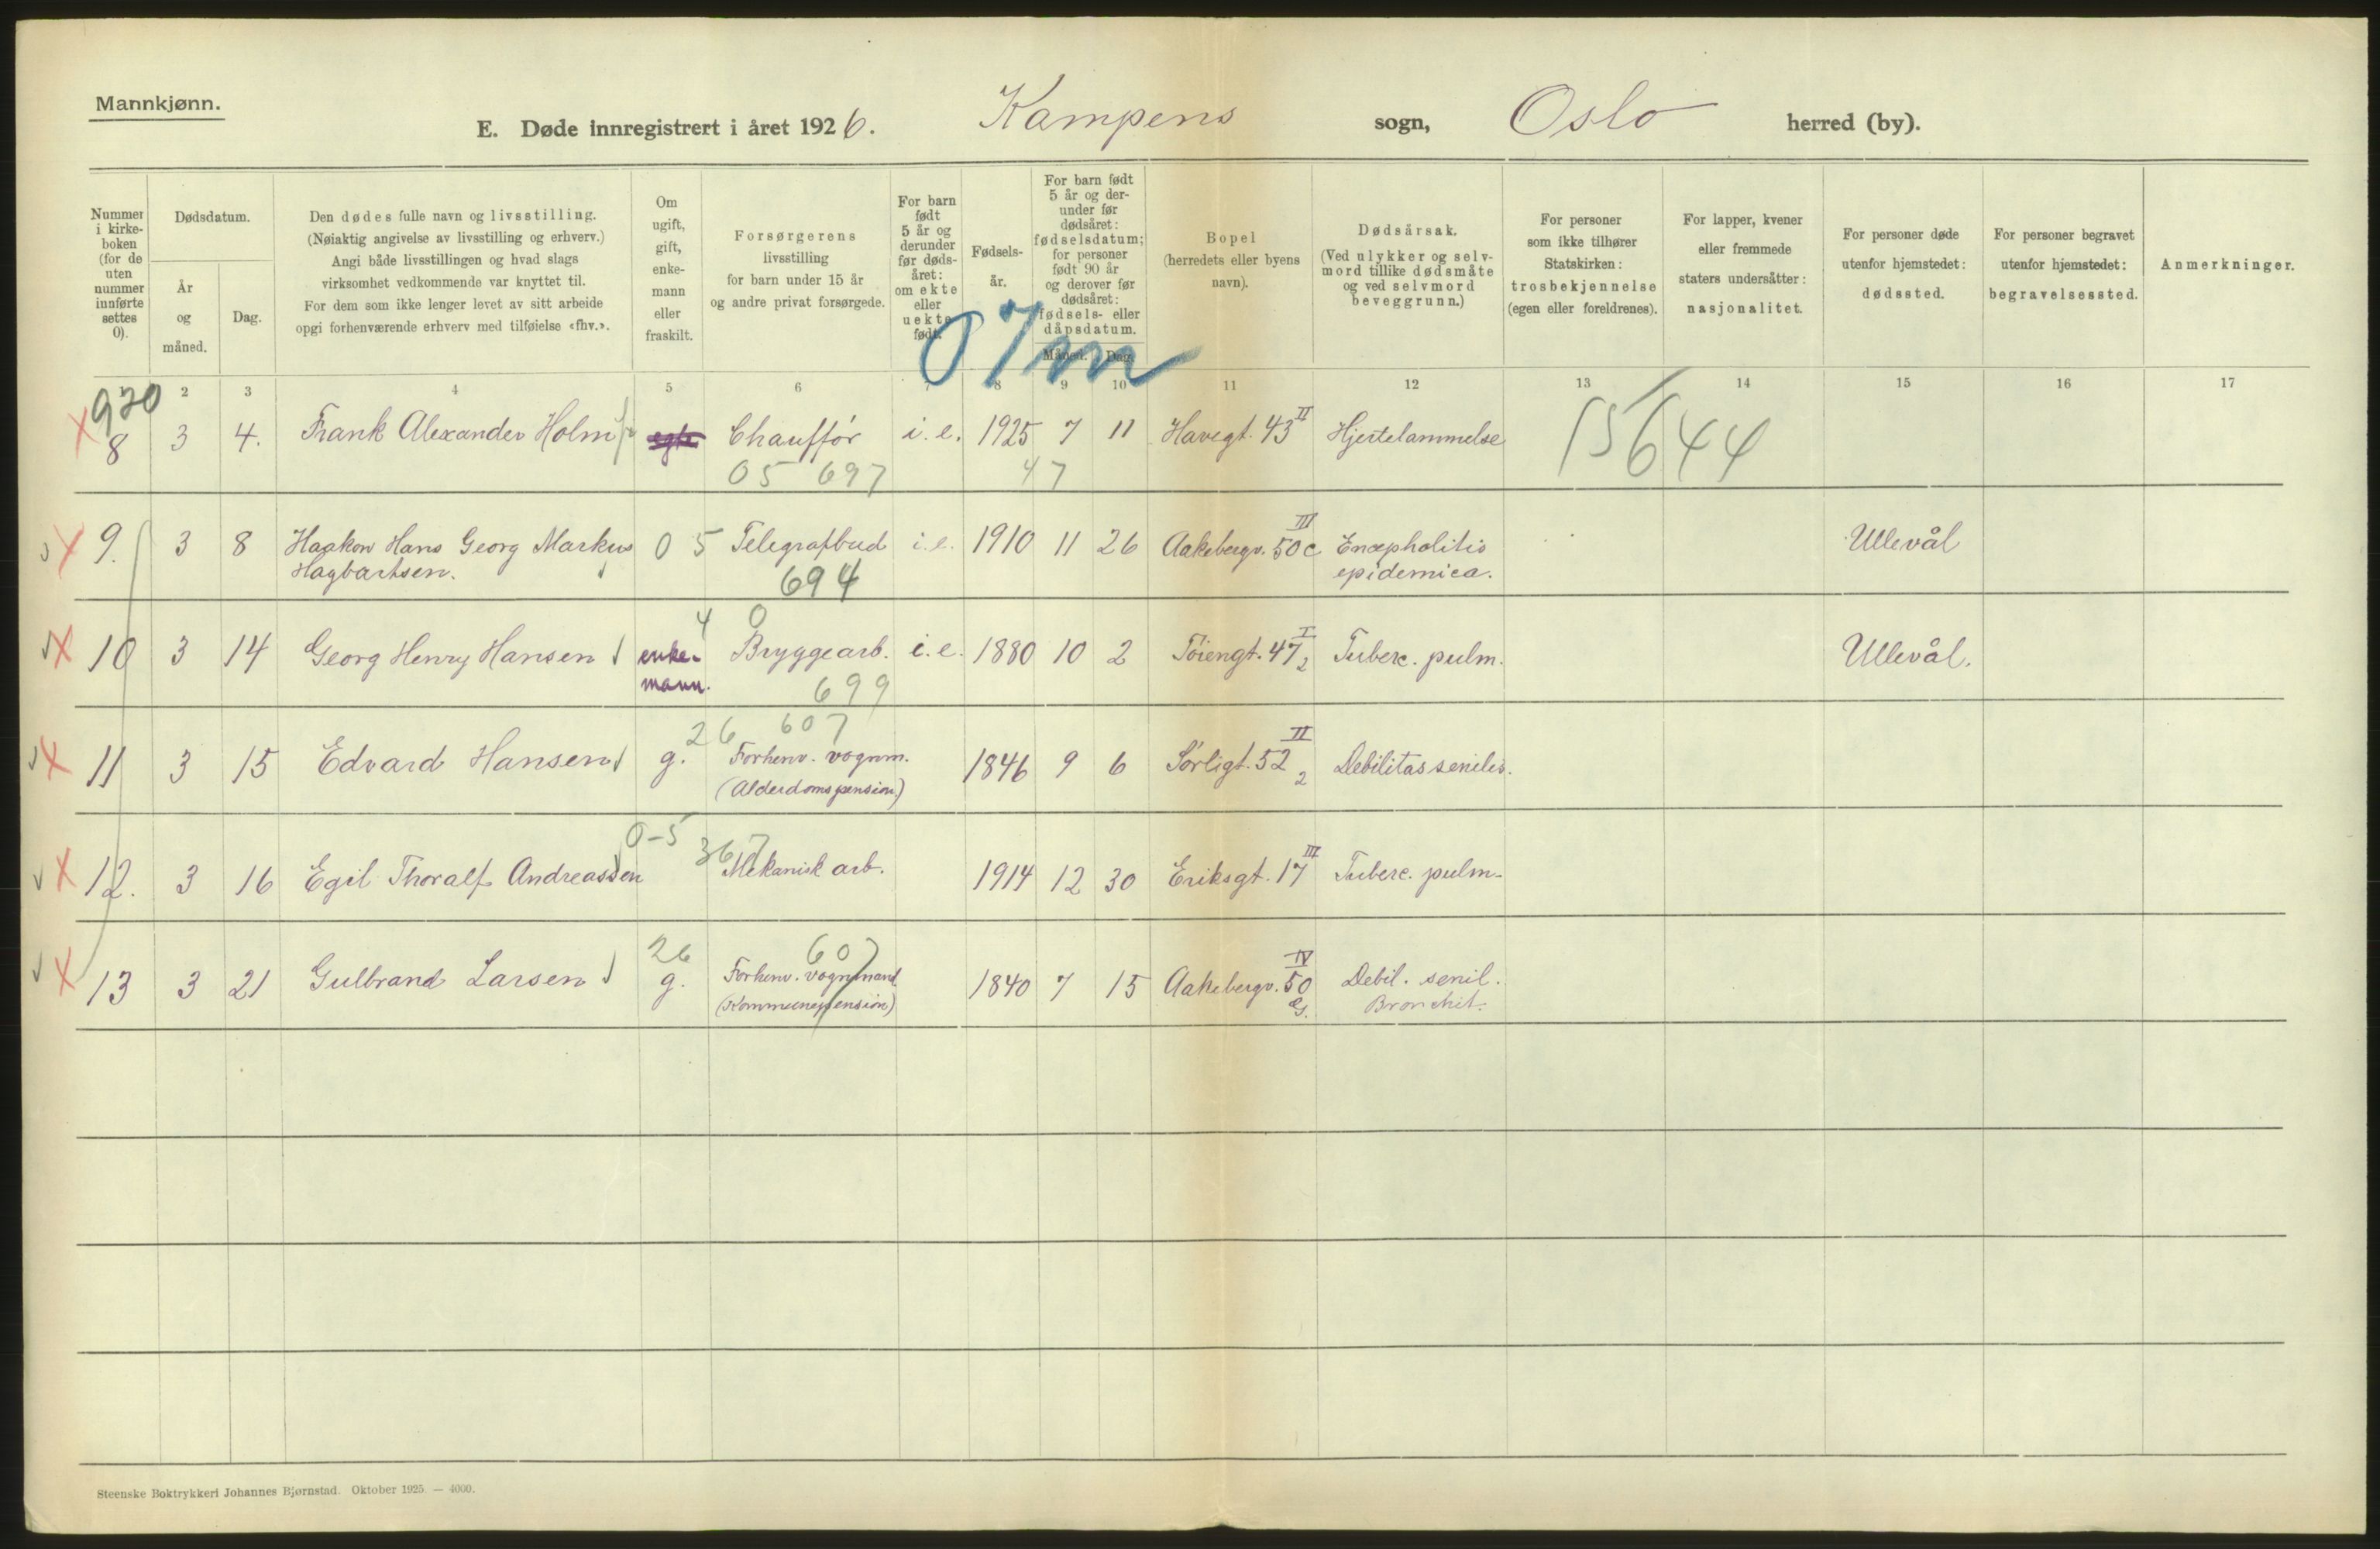 Mannkjønn.
E. Døde innregistrert i året 1926. Kampens sogn, Oslo herred (by).
Nummer i kirke-boken (for de uten nummer innførte settes 0).
Dødsdatum.
År og måned.
Dag.
Den dødes fulle navn og livsstilling.
(Nøiaktig angivelse av livsstilling og erhverv.)
Angi både livsstillingen og hvad slags
virksomhet vedkommende var knyttet til.
For dem som ikke lenger levet av sitt arbeide
opgi forhenværende erhverv med tilføielse «fhv.».
Om ugift, gift, enke-mann eller fraskilt.
Forsørgerens
livsstilling
for barn under 15 år
og andre privat forsørgede.
For barn født 5 år og derunder før døds-året: om ekte eller uekte født.
Fødsels-år.
For barn født 5 år og der-under før dødsåret: fødselsdatum; for personer født 90 år og derover før dødsåret: fødsels- eller dåpsdatum.
Måned. Dag.
Bopel
(herredets eller byens
navn).
Dødsårsak.
(Ved ulykker og selv-
mord tillike dødsmåte
og ved selvmord
beveggrunn.)
For personer
som ikke tilhører
Statskirken:
trosbekjennelse
(egen eller foreldrenes).
For lapper, kvener
eller fremmede
staters undersåtter:
nasjonalitet.
For personer døde
utenfor hjemstedet:
dødssted.
For personer begravet
utenfor hjemstedet:
begravelsessted.
Anmerkninger.
07m
2 3 4 5 6 7 8 9 10 11 12 13 14 15 16 17
920
8 3 4. Frank Alexander Holm egte Chauffór i. e. 1925 7 11 Havegt. 43 II Hjertelammelse 15644
05 697 47
9. 3 8 Haakon Hans Georg Markus 0 5 Telegrafbud i. e. 1910 11 26 Aakebergv. 50 c III Encepholitis Ullevål
Hagbartsen. 694 epidemica.
4 0
10 3 14 Georg Henry Hansen enke- Bryggearb. i. e. 1880 10 2 Töiengt. 47 I 2 Tuberc. pulm. Ullevål.
mann. 699
26 607
11 3 15 Edvard Hansen g. Forhenv. vognm. 1846 9 6 Sörligt. 52 II 2 Debilitas senilis.
(Alderdomspension)
0-5 367
12. 3 16 Egil Thoralf Andreassen Mekanisk arb. 1914 12 30 Eriksgt. 17 III Tuberc. pulm.
26 607
13 3 21 Gulbrand Larsen g. Forhenv. vognmand 1840 7 15 Aakebergv. 50 IV Debil. senil.
(Kommunepension) Bronchit.
Steenske Boktrykkeri Johannes Bjørnstad. Oktober 1925 — 4000.